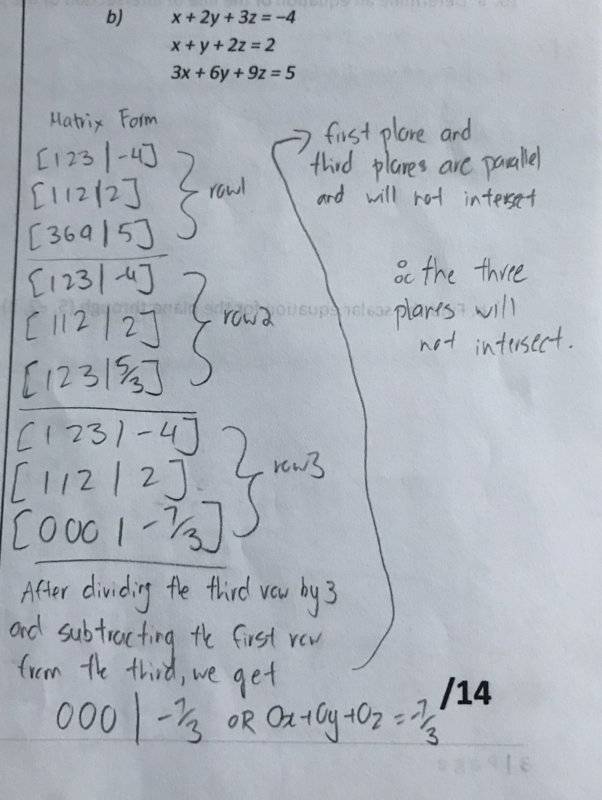 b) x + 2y + 3z = –4
x + y + 2z = 2
3x + 6y + 9z = 5
Matrix Form
[1 2 3 | -4]
[1 1 2 | 2]
[3 6 9 | 5]
row1
[1 2 3 | -4]
[1 1 2 | 2]
[1 2 3 | 5/3]
row2
[1 2 3 | -4]
[1 1 2 | 2]
[0 0 0 | -7/3]
row3
After dividing the third row by 3
and subtracting the first row
from the third, we get
0 0 0 | -7/3 OR 0x+0y+0z = -7/3
first plane and
third planes are parallel
and will not interset
∴ the three
planes will
not intersect.
/14